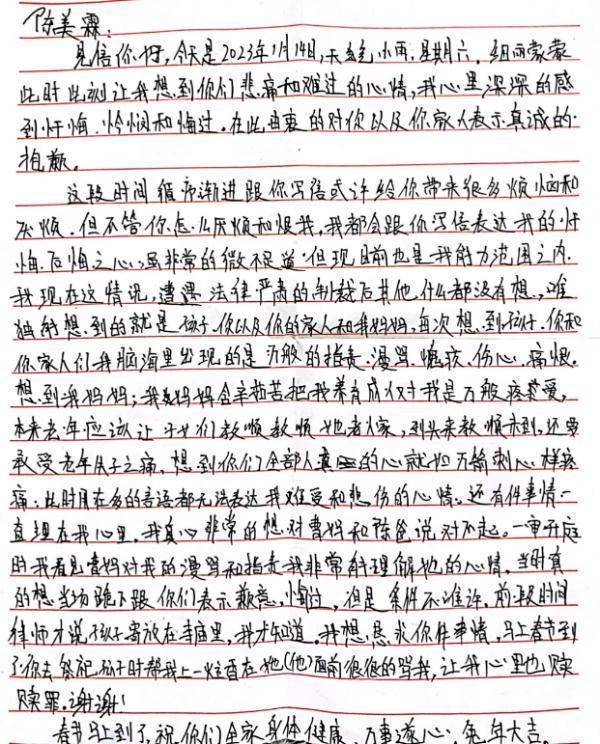 陈美霖:
见信你好,今天是2023年1月14日,天气 小雨,星期六,细雨蒙蒙
此时此刻让我想到你们悲痛和难过的心情,我心里深深的感
到忏悔、怜悯和悔过。在此由衷的对你以及你家人表示真诚的
抱歉。
这段时间循序渐进跟你写信或许给你带来很多烦恼和
厌烦,但不管你怎么厌烦和恨我,我都会跟你写信表达我的忏
悔、后悔之心,虽非常的微不足道,但现目前也是我能力范围之内,
我现在这情况,遭遇法律严肃的制裁后其他什么都没有想,唯
独能想到的就是孩子、你以及你的家人和我妈妈,每次想到孩子、你和
你家人们我脑海里出现的是万般的指责、漫骂、愧疚、伤心、痛恨。
想到我妈妈;我妈妈含辛茹苦把我养育成人对我是万般疼爱,
本来老年应该让子女们孝顺孝顺她老人家,到头来孝顺未到,还要
承受老年失子之痛,想到你们全部人的心就如万箭刺心一样疼
痛;此时用在多的言语都无法表达我难受和悲伤的心情。还有件事情一
直埋在我心里,我真心非常的想对曹妈和陈爸说对不起。一审开庭
时我看见曹妈对我的漫骂和指责我非常能理解她的心情,当时真
的想当场跪下跟你们表示歉意、悔过,但是条件不准许,前段时间
律师才说孩子寄放在寺庙里,我才知道,我想恳求你件事情,马上春节到
了你去祭祀孩子时帮我上一炷香在她(他)面前狠狠的骂我,让我心里也赎
赎罪。谢谢!
春节马上到了,祝你们全家身体健康、万事遂心、兔年大吉。